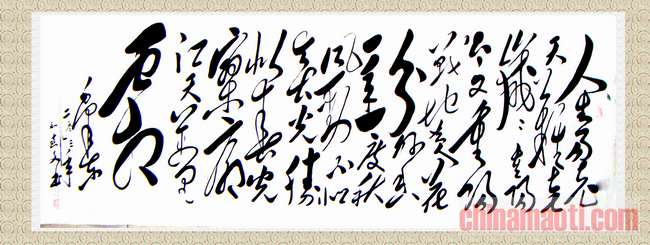 人生易老
天难老
岁岁重阳
今又重阳
战地黄花
分外香
一年一度秋
风劲不似
春光胜
似春光
寥廓
江天万里
霜
毛泽东
chinamaoti.com